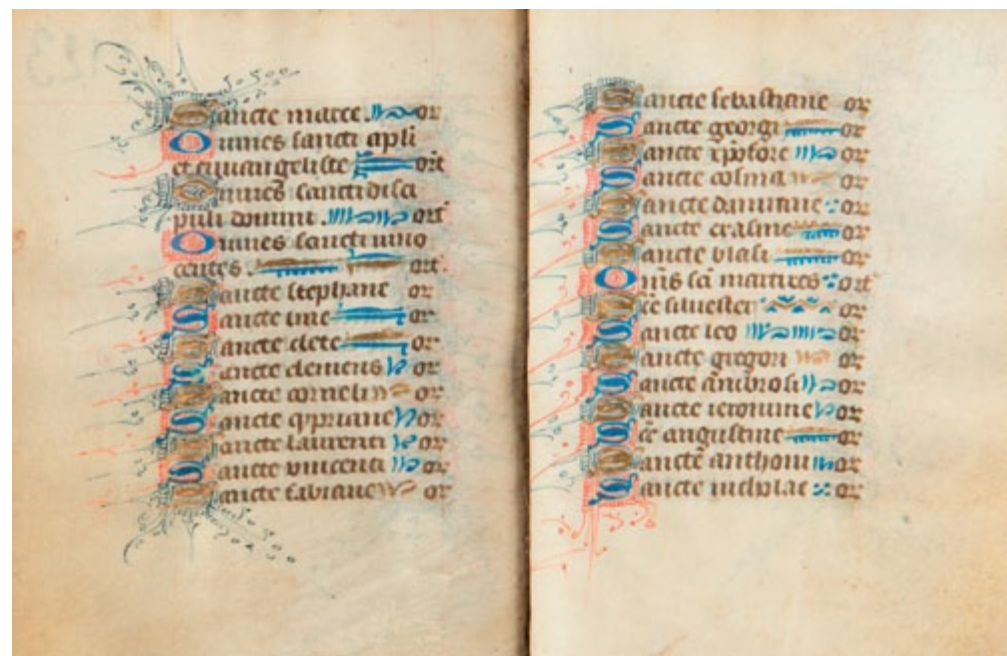 Sancte marce or
Omnes sancti apli
et euuangeliste ort
Omnes sancti disci
puli domini ort
Omnes sancti inno
centes ort
Sancte stephane or
Sancte line or
Sancte clete or
Sancte clemens or
Sancte corneli or
Sancte cypriane or
Sancte laurenti or
Sancte vincenti or
Sancte fabiane or
Sancte sebastiane or
Sancte georgi or
Sancte xpofore or
Sancte cosma or
Sancte damiane or
Sancte erasme or
Sancte blasi or
Oms sci martires ort
Sce siluester or
Sancte leo or
Sancte gregori or
Sancte ambrosi or
Sancte ieronime or
Sce augustine or
Sancte anthoni or
Sancte nicholae or